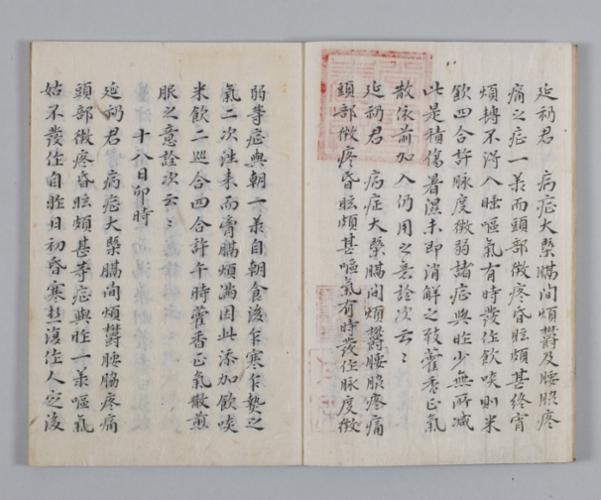 延礽君 病症大槩膈间煩鬱及腰腿疼
痛之症一㨾而頭部微疼昏眩頗甚終宵
煩轉不淂入睡嘔氣有時發作飲啖則米
飲四合許脉度微弱諸症與昨少無所减
此是積傷暑濕未即消解之致藿香正氣
散依前加入仍用之意詮次云〻
延礽君 病症大槩膈间煩鬱腰腿疼痛
頭部微疼昏眩頗甚嘔氣有時發作脉度微
弱等症與朝一㨾自朝食後乍寒乍熱之
氣二次往来而膏膈煩滿因此添加飲啖
米飲二巡合四合許午時藿香正氣散煎
服之意詮次云〻
十八日卯時
延礽君 病症大槩膈间煩鬱腰腸疼痛
頭部微疼昏眩頗甚等症與昨一㨾嘔氣
姑不發作自昨日初昏寒熱復作人定後